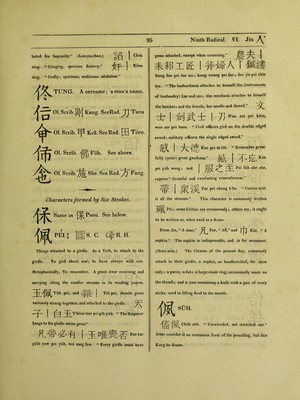 95
Ninth Radical. VI. Jin 人
hated his hypocrisy." (Lun-yu-choo.) 諂 Chen
ning. "Cringing, specious flattery." 奸 Këen
ning. "Crafty; specious; sedulous adulation."
佟 TUNG. A surname; a man's name.
Ol. Scrib. 剛 Kang. See Rad. 刀 Taou
Ol. Scrib. 甲 Kеă. See Rad. 田 Tëen.
Ol. Scrib. 佛 Fŭh. See above.
Ol. Scrib. 施 She. See Rad. 方 Fang
Characters formed by Six Strokes.
Same as 保 Paou. See below.
佩 PEI.
S. C.
R. H.
Things attached to a girdle. As a Verb, to attach to the
girdle. To gird about one; to have always with one.
Metaphorically, To remember. A great river receiving and
carrying along the smaller streams in its winding progress.
玉佩 Yŭh pei, and
Tsă pei, denote gems
variously strung together, and attached to the girdle. 天
子 白玉 Tëen-tsze pei pĭh yŭh. "The Emperor
hangs to his girdle white gems."
凡帶必有 玉唯喪否 Fan tae
peĭh yew pei yŭh, wei sang fow. "Every girdle must have
gems attached, except when mourning."
農夫
耒耜工匠 斧婦人 鍼縷
Nung foo pei luy sze; kung tseang pei foo; foo jin pei chin
leu. "The husbandman attaches to himself (the instruments
of husbandry) Luy and sze; the mechanic attaches to himself
the hatchet; and the female, her needle and thread." 文
士 劍武士 刀 Wan sze pei këen,
woo sze pei taou. "Civil officers gird on the double edged
sword; military officers the single edged sword."
感 大德 Kan pei ta tĭh. "Remember grate-
fully (your) great goodness." 感 不忘 Kan
pei pŭh wang; and 服之至 Pei fŭh che che,
express "Grateful and everlasting remembrance."
帶衆㵎 Tae pei chung k'he. "Carries with
it all the streams." This character is commonly written
珮 Pei; some Critics say erroneously; others say, it ought
to be written so, when used as a Noun.
From Jin, "A man," 凡 Fan, "All," and 巾 Kin, "A
napkin." The napkin is indispensable, and is for common
use
The Chinese of the present day, commonly
attach to their girdle, a napkin, or handkerchief, for show
only; a purse, a fan; a large stone ring, occasionally worn on
the thumb; and a case containing a knife with a pair of ivory
sticks, used in lifting food to the mouth.
SŬH.
Chĭh sŭh. "Unextended, not stretched out."
Some consider it an erroneous form of the preceding, but this
Kang-he denies.